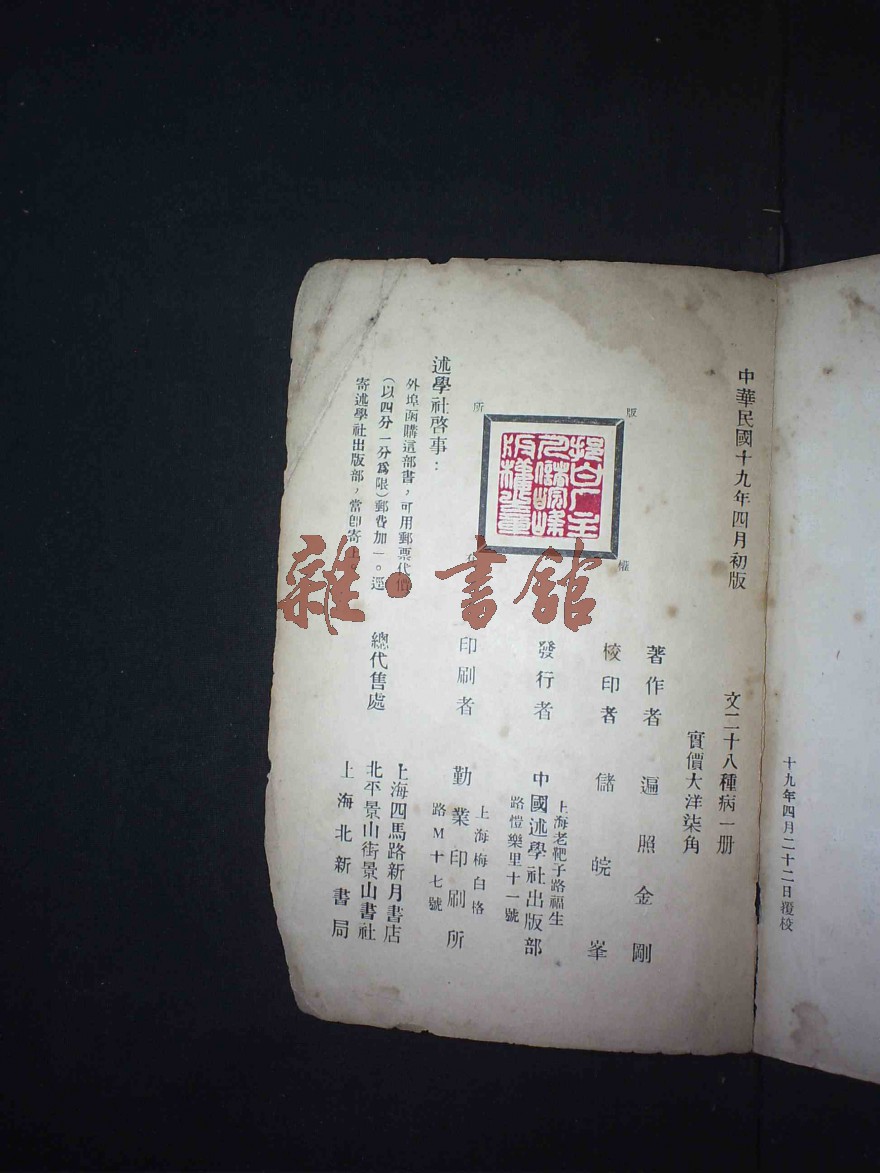 十九年四月二十二日覆校
中華民國十九年四月初版
文二十八種病一册
實價大洋柒角
版權所
著作者 遍照金剛
校印者 儲皖峯
發行者 中國述學社出版部
上海老靶子路福生
路愷樂里十一號
印刷者 勤業印刷所
上海梅白格
路M十七號
總代售處
上海四馬路新月書店
北平景山街景山書社
上海北新書局
述學社啓事：
外埠函購這部書，可用郵票代價
（以四分一分爲限）郵費加一。逕
寄述學社出版部，當卽寄上
雜·書館